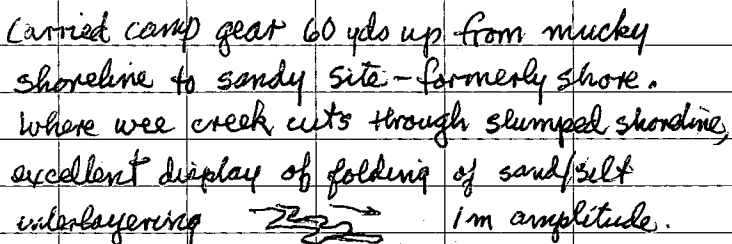 Carried camp gear 60 yds up from mucky
shoreline to sandy site - formerly shore.
Where wee creek cuts through slumped shoreline,
excellent display of folding of sand/silt
interlayering 1m amplitude.